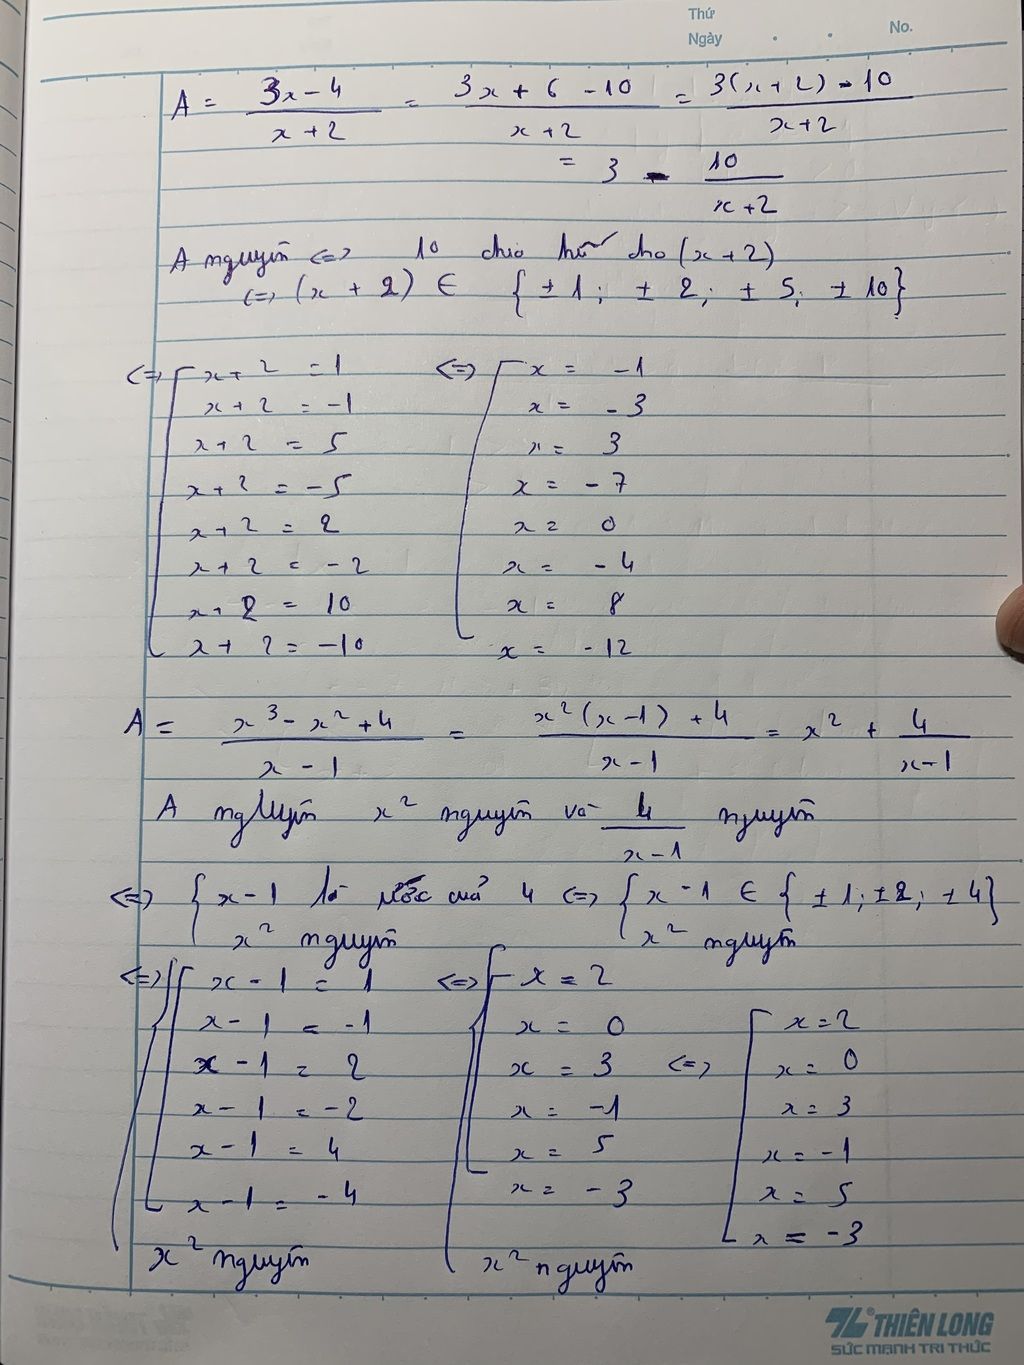 Thứ
Ngày . . No.
A = (3x - 4)/(x + 2) = (3x + 6 - 10)/(x + 2) = (3(x + 2) - 10)/(x + 2)
= 3 - 10/(x + 2)
A nguyên <=> 10 chia hết cho (x + 2)
<=> (x + 2) ∈ {± 1; ± 2; ± 5; ± 10}
<=> [ x + 2 = 1 <=> [ x = -1
x + 2 = -1 x = -3
x + 2 = 5 x = 3
x + 2 = -5 x = -7
x + 2 = 2 x = 0
x + 2 = -2 x = -4
x + 2 = 10 x = 8
x + 2 = -10 x = -12
A = (x³ - x² + 4)/(x - 1) = (x²(x - 1) + 4)/(x - 1) = x² + 4/(x - 1)
A nguyên x² nguyên và 4/(x - 1) nguyên
<=> { x - 1 là ước của 4 <=> { x - 1 ∈ {± 1; ± 2; ± 4}
x² nguyên x² nguyên
<=> { [ x - 1 = 1 <=> { [ x = 2
x - 1 = -1 x = 0 [ x = 2
x - 1 = 2 x = 3 <=> x = 0
x - 1 = -2 x = -1 x = 3
x - 1 = 4 x = 5 x = -1
x - 1 = -4 x = -3 x = 5
x = -3
x² nguyên x² nguyên
THIÊN LONG
SỨC MẠNH TRI THỨC